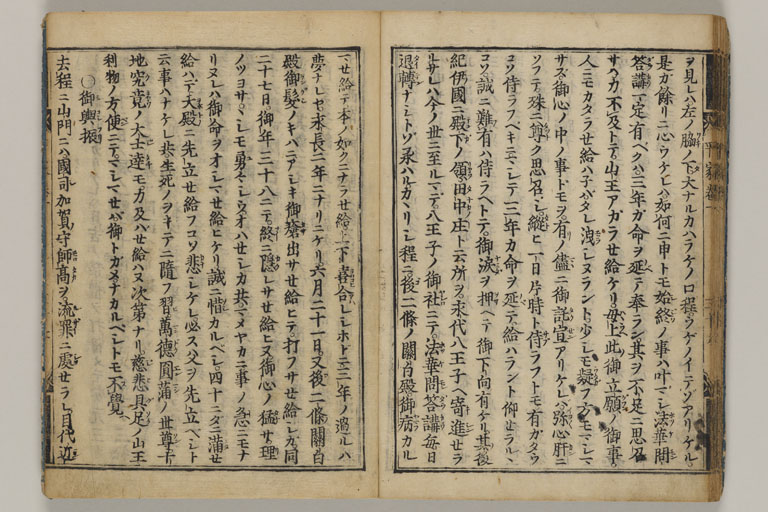 ヲ見レハ左ノ脇ノ下大ナルカハラケノ口程ウケノイテゾアリケル
是ガ餘リニ心ウケレハ如何ニ申トモ始終ノ事ハ叶マシ法華問
答講一定有ベクハ三年ガ命ヲ延テ奉ラン其ヲ不足ニ思召
サハ力不及トテ山王アガラせ給ケリ母上此御立願ノ御事ハ
人ニモカタラせ給ハ子バタレ洩シヌラント少シモ疑フ方モマシマ
サズ御心ノ中ノ事トモヲ有ノ儘ニ御託宣アリケレハ弥心肝ニ
ソフテ殊ニ尊ク思召シ縦ヒ一日片時ト侍ラフトモ有ガタウ
コソ侍ラフベキニマシテ三年カ命ヲ延テ給ハラント仰せラルヽ
コソ誠ニ難有ハ侍ラヘトテ御涙ヲ押ヘテ御下向有ケリ其後
紀伊國ニ殿下ノ領田中庄ト云所ヲ永代八王子ヘ寄進せラ
ル サレハ今ノ世ニ至ルマテ八王子ノ御社ニテ法華問答講毎日
退轉ナシトゾ承ハルカヽリシ程ニ後二條ノ關白殿御病カル
マせ給テ本ノ如クニナラせ給上下喜合レシホトニ三年ノ過ルハ
夢ナレヤ永長二年ニナリニケリ六月二十一日又後二條關白
殿御髪ノキハニアシキ御瘡出サせ給ヒテ打フサせ給シカ同
二十七日御年三十八ニテ終ニ隱レサせ給ヒヌ御心ノ猛サ理
ノツヨササシモ勇々シウオハせシカ共マメヤカニ事ノ急ニモナ
リヌレハ御命ヲオシマせ給ヒケリ誠ニ惜カルベシ四十ニダニ滿せ
給ハテ大殿ニ先立せ給フコソ悲シケレ必ス父ヲ先立ベシト
云事ハナケレ共生死ノヲキテニ隨フ習萬德圓滿ノ世尊十
地究竟ノ大士達モ力及ハせ給ハヌ次第ナリ慈悲具足ノ山王
利物ノ方便ニテマシマせバ御トガメナカルベシトモ不覺
〇御輿振
去程ニ山門ニハ國司加賀守師高ヲ流罪ニ處せラレ目代近